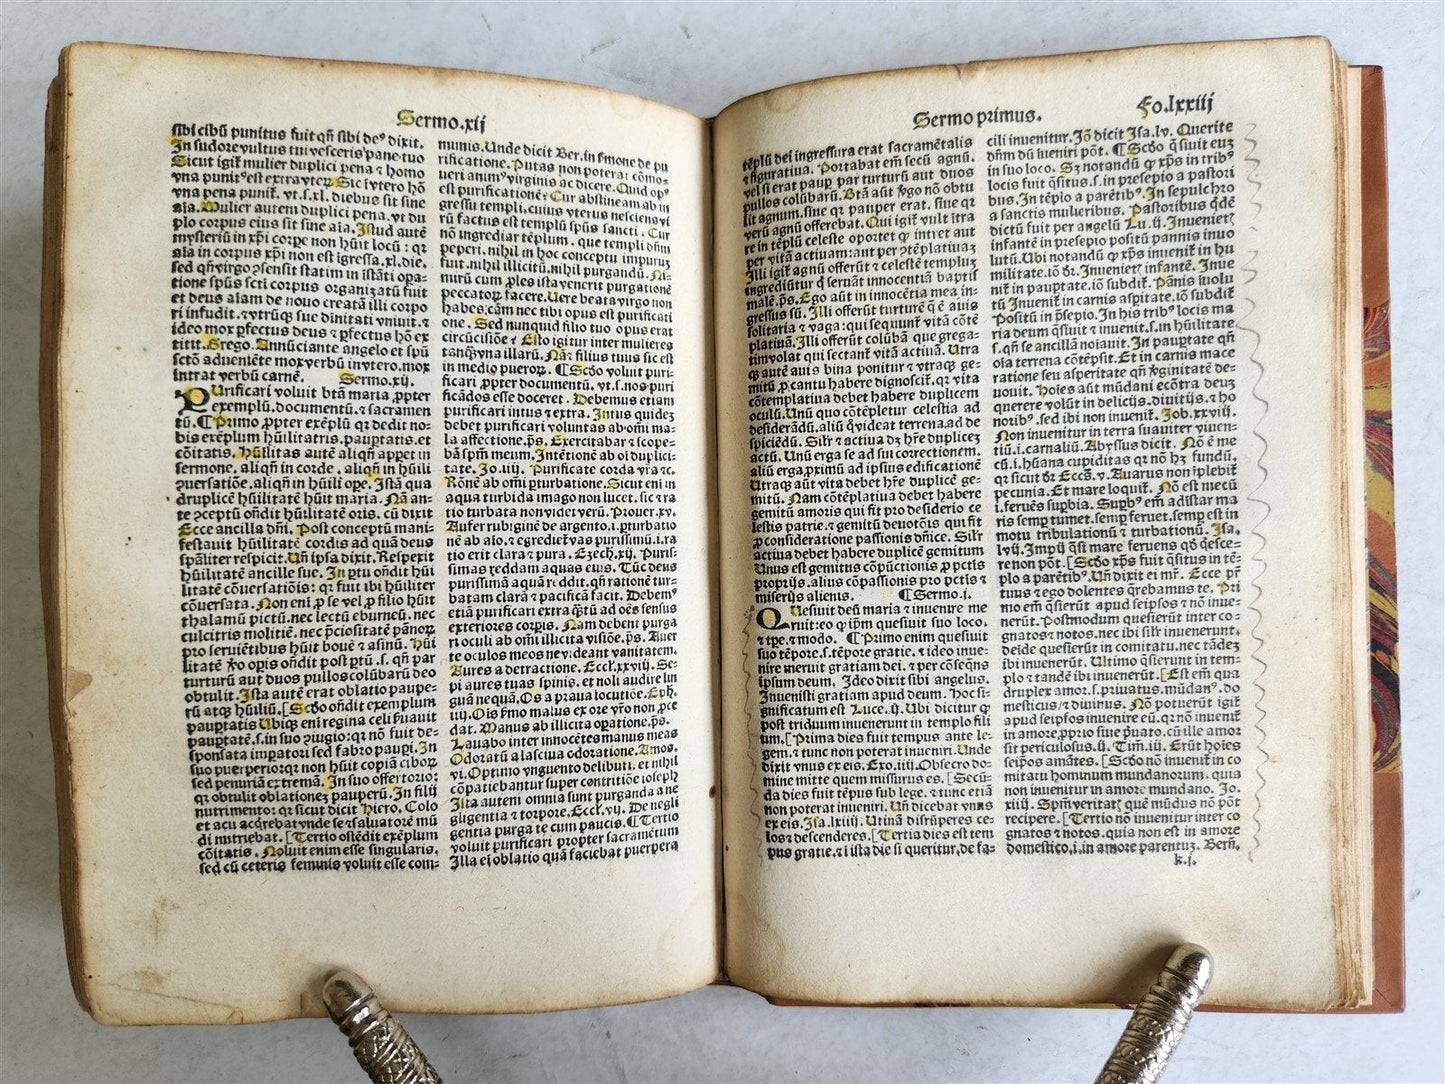 Sermo.xij
sibi cibū punitus fuit qn̄ sibi deꝰ dixit.
In sudore vultus tui vesceris pane tuo
Sicut igit̄ mulier duplici pena ⁊ homo
vna punitꝰ est extra vterꝫ Sic ī vtero hō
vna pena punit̄. vt.s.xl. diebus sit sine
aīa. Mulier autem duplici pena. vt du
plo corpus eius sit sine aīa. Istud autē
mysteriū in xp̄i corpe non hūit locū : qꝛ
aīa in corpus xp̄i non est īgressa.xl.die.
sed qn̄ virgo ꝯsensit statim in istāti opa-
tione spūs sctī corpus organizatū fuit
et deus aīam de nouo creatā illi corpo
ri infudit. ⁊ vtrūqꝫ sue dinitati vniuit. ⁊
ideo mox ꝑfectus deus ⁊ ꝑfectus hō ex
titit. Grego. Annūciante angelo et spū
sctō adueniēte mox verbū in vtero. mox
intrat verbū carnē. Sermo.xij.
PUrificari voluit btā maria ꝓpter
exemplū. documentū. ⁊ sacramen
tū. ¶ Primo ꝓpter exēplū qꝛ dedit no-
bis exēplum hūilitatis. paupta​tis. et
cōitatis. Hūilitas autē aliqn̄ appet in
sermone. aliqn̄ in corde. aliqn̄ in hūili
ꝯuersatiōe. aliqn̄ in hūili ope. Istā qua
druplicē hūilitatē hūit maria. Nā an-
te ꝯceptū on̄dit hūilitatē oris. cū dixit
Ecce ancilla dn̄i. Post conceptū mani-
festauit hūilitatē cordis ad quā deus
spāliter respicit. Un̄ ipsa dixit. Respexit
hūilitatē ancille sue. In ꝑtu on̄dit hūi
litatē cōuersatiōis: qꝛ fuit ibi hūiliter
cōuersata. Non eni ꝑ se vel ꝑ filio hūit
thalamū pictū. nec lectū eburneū. nec
culcitris molitiē. nec p̄ciositatē pānoꝝ
pro seruiētibus hūit bouē ⁊ asinū. Hūi
litatē ꝟo opis on̄dit post ꝑtū .s. qn̄ par
turturū aut duos pullos colūbarū deo
obtulit. Ista autē erat oblatio paupe-
rū atqꝫ hūiliū. [Scdo on̄dit exemplum
pauptatis Ubiqꝫ eni regina celi ẜuauit
pauptatē.s. in suo ꝯiugio: qꝛ nō fuit de-
sponsata impatori sed fabro paupi. In
suo puerperio: qꝛ non hūit copiā ciboꝝ
sed penuriā extremā. In suo offertorio:
qꝛ obtulit oblationē pauperū. In filij
nutrimento: qꝛ sicut dicit Hiero. Colo
et acu acq̄rebat vnde se ⁊ saluatorē mū
di nutriebat. [Tertio ostēdit exēplum
cōitatis. Noluit enim esse singularis.
sed cū ceteris feminis voluit esse com-
munis. Unde dicit Ber. in ẜmone de pu
rificatione. Putas non poterat cōmo-
ueri animꝰ virginis ac dicere. Quid opꝰ
est purificatione? Cur abstineam ab in
gressu templi. cuius vterus nesciens vi
rū factus est templū spūs sancti. Cur
nō ingrediar templum. que templi dn̄m
peperi. nihil in hoc conceptu impurū
fuit. nihil illicitū. nihil purgandū. Ni-
mirū cum ꝓles ista venerit purgationē
peccatoꝝ facere. Uere beata virgo non
habes. cām nec tibi opus est purificati
one. Sed nunquid filio tuo opus erat
circūcisiōe ⁊ Esto igitur inter mulieres
tanqꝫ vna illarū. Nā ⁊ filius tuus sic est
in medio pueroꝝ. ¶ Scdo voluit puri-
ficari ꝓpter documentū. vt.s. nos puri
ficādos esse doceret. Debemus etiam
purificari intus ⁊ extra. Intus quideꝫ
debet purificari voluntas ab omi ma-
la affectione. ps̄. Exercitabar ⁊ scope-
bā spm̄ meum. Intentiōe ab oi dupli ci-
tate. Jo.iiij. Purificate corda vr̄a ⁊c.
Rōne ab omi ꝑturbatione. Sicut eni in
aqua turbida imago non lucet. sic ⁊ ra
tio turbata non videt verū. Prouer.xv.
Aufer rubiginē de argento. i. ꝑturbatio
nē ab aīo. ⁊ egrediet̄ vas purissimū. i. ra
tio erit clara ⁊ pura. Ezech.xij. Puris-
simas reddam aquas eius. Tūc deus
purissimā aquā reddit. qn̄ rationē tur-
batam clarā ⁊ pacificā facit. Debemꝰ
etiā purificari extra q̄tū ad oēs sensus
exteriores corpis. Nam debent purga
ri oculi ab omi illicita visiōe. ps̄. Auer
te oculos meos ne videant vanitatem.
Aures a detractione. Eccl.xxviij. Se-
pi aures tuas spinis. et noli audire lin
guā nequā. Os a praua locutiōe. Eph.
iiij. Ois ẜmo malus ex ore vr̄o non ꝓce
dat. Manus ab illicita opatione. ps̄.
Lauabo inter innocētes manus meas
Odoratū a lasciua odoratione. Amos.
vi. Optimo vnguento delibuti. et nihil
cōpatiebantur super contritiōe ioseph
Ista autem omnia sunt purganda a ne
gligentia ⁊ torpore. Eccl.vij. De negli
gentia purga te cum paucis. ¶ Tertio
voluit purificari propter sacramētum
Illa ei oblatio quā faciebat puerpera
Sermo primus. Fo.lxxiij
tēplū dei ingressura erat sacramētalis
⁊ figuratiua. Portabat em̄ secū agnū.
vel si erat paup par turturū aut duos
pullos colūbarū. Btā aūt ꝟgo nō obtu
lit agnum. siue qꝛ pauper erat. siue qꝛ
verū agnū offerebat. Qui igit̄ vult ītra
re in tēplū celeste oportet ꝙ intret aut
per vitā actiuam: aut per ꝯtēplatiuaꝫ
Illi igit̄ agnū offerūt ⁊ celestē templuꝫ
ingrediūtur q̄ seruāt innocentiā baptis
malē. ps̄. Ego aūt in innocētia mea in-
gressus sū. Illi offerūt turturē q̄ ē auis
solitaria ⁊ vaga: qui sequunt̄ vitā cōtē
platiuā. Illi offerūt colūbā que grega-
tim volat qui sectant̄ vitā actiuā. Utra
qꝫ autē auis bina ponitur ⁊ vtraqꝫ ge-
mitū ꝓ cantu habere dignoscit̄. qꝛ vita
cōtemplatiua debet habere duplicem
oculū. Unū quo cōtēpletur celestia ad
desiderādū. aliū q̄ videat terrena. ad de
spiciēdū. Silr̄ ⁊ actiua dꝫ hr̄e duplicēꝫ
actū. Unū erga se ad sui correctionem.
aliū erga ꝓximū ad ipsius edificationē
Utraqꝫ aūt vita debet hr̄e duplicē ge-
mitū. Nam cōtēplatiua debet habere
gemitū amoris qui fit pro desiderio ce
lestis patrie. ⁊ gemitū deuotōis qui fit
ꝓ consideratione passionis dn̄ice. Silr̄
actiua debet habere duplicē gemitum
Unus est gemitus cōpūctionis ꝓ pctīs
proprijs. alius cōpassionis pro pctīs ⁊
miserijs alienis. ¶ Sermo.j.
QUesiuit deū maria ⁊ inuenire me
ruit: eo ꝙ ip̄m quesiuit suo loco.
⁊ tpe. ⁊ modo. ¶ Primo enim quesiuit
suo tēpore. s. tēpore gratie. ⁊ ideo inue-
nire meruit gratiam dei. ⁊ per cōseq̄ns
ipsum deum. Ideo dixit sibi angelus.
Inuenisti gratiam apud deum. Hoc si-
gnificatum est Luce.ij. Ubi dicitur ꝙ
post triduum inuenerunt in templo fili
um. [Prima dies fuit tempus ante le-
gem. ⁊ tunc non poterat inueniri. Unde
dixit vnus ex eis. Exo.iiij. Obsecro do-
mine mitte quem missurus es. [Secū-
da dies fuit tēpus sub lege. ⁊ tunc etiā
non poterat inueniri. Un̄ dicebat vnus
ex eis. Isa.lxiiij. Utinā disrūperes ce-
los ⁊ descenderes. [Tertia dies est tem
pus gratie. ⁊ ī ista die si queritur. de fa-
cili inuenitur. Iō dicit Isa.lv. Querite
dn̄m dū inueniri pōt. ¶ Scdo q̄siuit euꝫ
in suo loco. Sꝫ notandū ꝙ xp̄s in tribꝰ
locis fuit q̄situs. s. in presepio a pastori
bus. In tēplo a parētibꝰ. In sepulchro
a sanctis mulieribus. Pastoribus q̄dē
dictū fuit per angelū Lu.ij. Inuenietꝭ
infantē in presepio positū pannis inuo
lutū. Ubi notandū ꝙ xp̄s inuenit̄ in hu
militate. iō dr̄. Inuenietꝭ infantē. Inue
nit̄ in pauptate. iō subdit̄. Pānis inuolu
tū Inuenit̄ in carnis aspitate. iō subdit̄
Positū in p̄sepio. In his tribꝰ locis ma
ria deum q̄siuit ⁊ inuenit. s. in hūilitate
s. qn̄ se ancillā noīauit. In pauptate qn̄
oīa terrena cōtēpsit. Et in carnis mace
ratione seu asperitate qn̄ ꝟginitatē de-
uouit. Hoies aūt mūdani ecōtra deuꝫ
querere volūt in delicijs. diuitijs. ⁊ ho
noribꝰ. sed ibi non inuenit̄. Job.xxviij.
Non inuenitur in terra suauiter viuen-
tiū. i. carnaliū. Abyssus dicit. Nō ē me
cū. i. hūana cupiditas qꝛ nō hꝫ fundū.
qꝛ sicut dr̄ Eccs.v. Auarus non īplebit̄
pecunia. Et mare loquit̄. Nō est mecū
i. feruēs supbia. Supbꝰ em̄ assistar ma
ris semp tumet. semp feruet. semp est in
motu tribulationū ⁊ turbationū. Isa.
lvij. Impij q̄si mare feruens qd̄ q̄esce-
re non pōt. [Scdo xp̄s fuit q̄situs in tē-
plo a parētibꝰ. Un̄ dixit ei mr̄. Ecce pr̄
tuus ⁊ ego dolentes q̄rebamus te. Pri
mo em̄ q̄sierūt apud seipsos ⁊ nō inue-
nerūt. Postmodum quesierūt inter co-
gnatos ⁊ notos. nec ibi silr̄ inuenerunt.
deīde quesierūt in comitatu. nec tādeꝫ
ibi inuenerūt. Ultimo q̄sierunt in tem-
plo ⁊ tandē ibi inuenerūt. [Est em̄ qua
druplex amor. s. priuatus. mūdanꝰ. do
mesticus ⁊ diuinus. Nō potuerūt igit̄
apud seipsos inuenire eū. qꝛ nō inuenit̄
in amore ꝓprio siue p̄uato. cū ille amor
sit periculosus. ij. Tim.iij. Erūt hoies
seipsos amātes. [Scdō nō inuenit̄ in co
mitatu hominum mundanorum. quia
non inuenitur in amore mundano. Jo.
xiiij. Spm̄ veritatꝭ quē mūdus nō pōt
recipere. [Tertio nō inuenitur inter co
gnatos ⁊ notos. quia non est in amore
domestico. i. in amore parentuꝫ. Bern̄.
k.j.